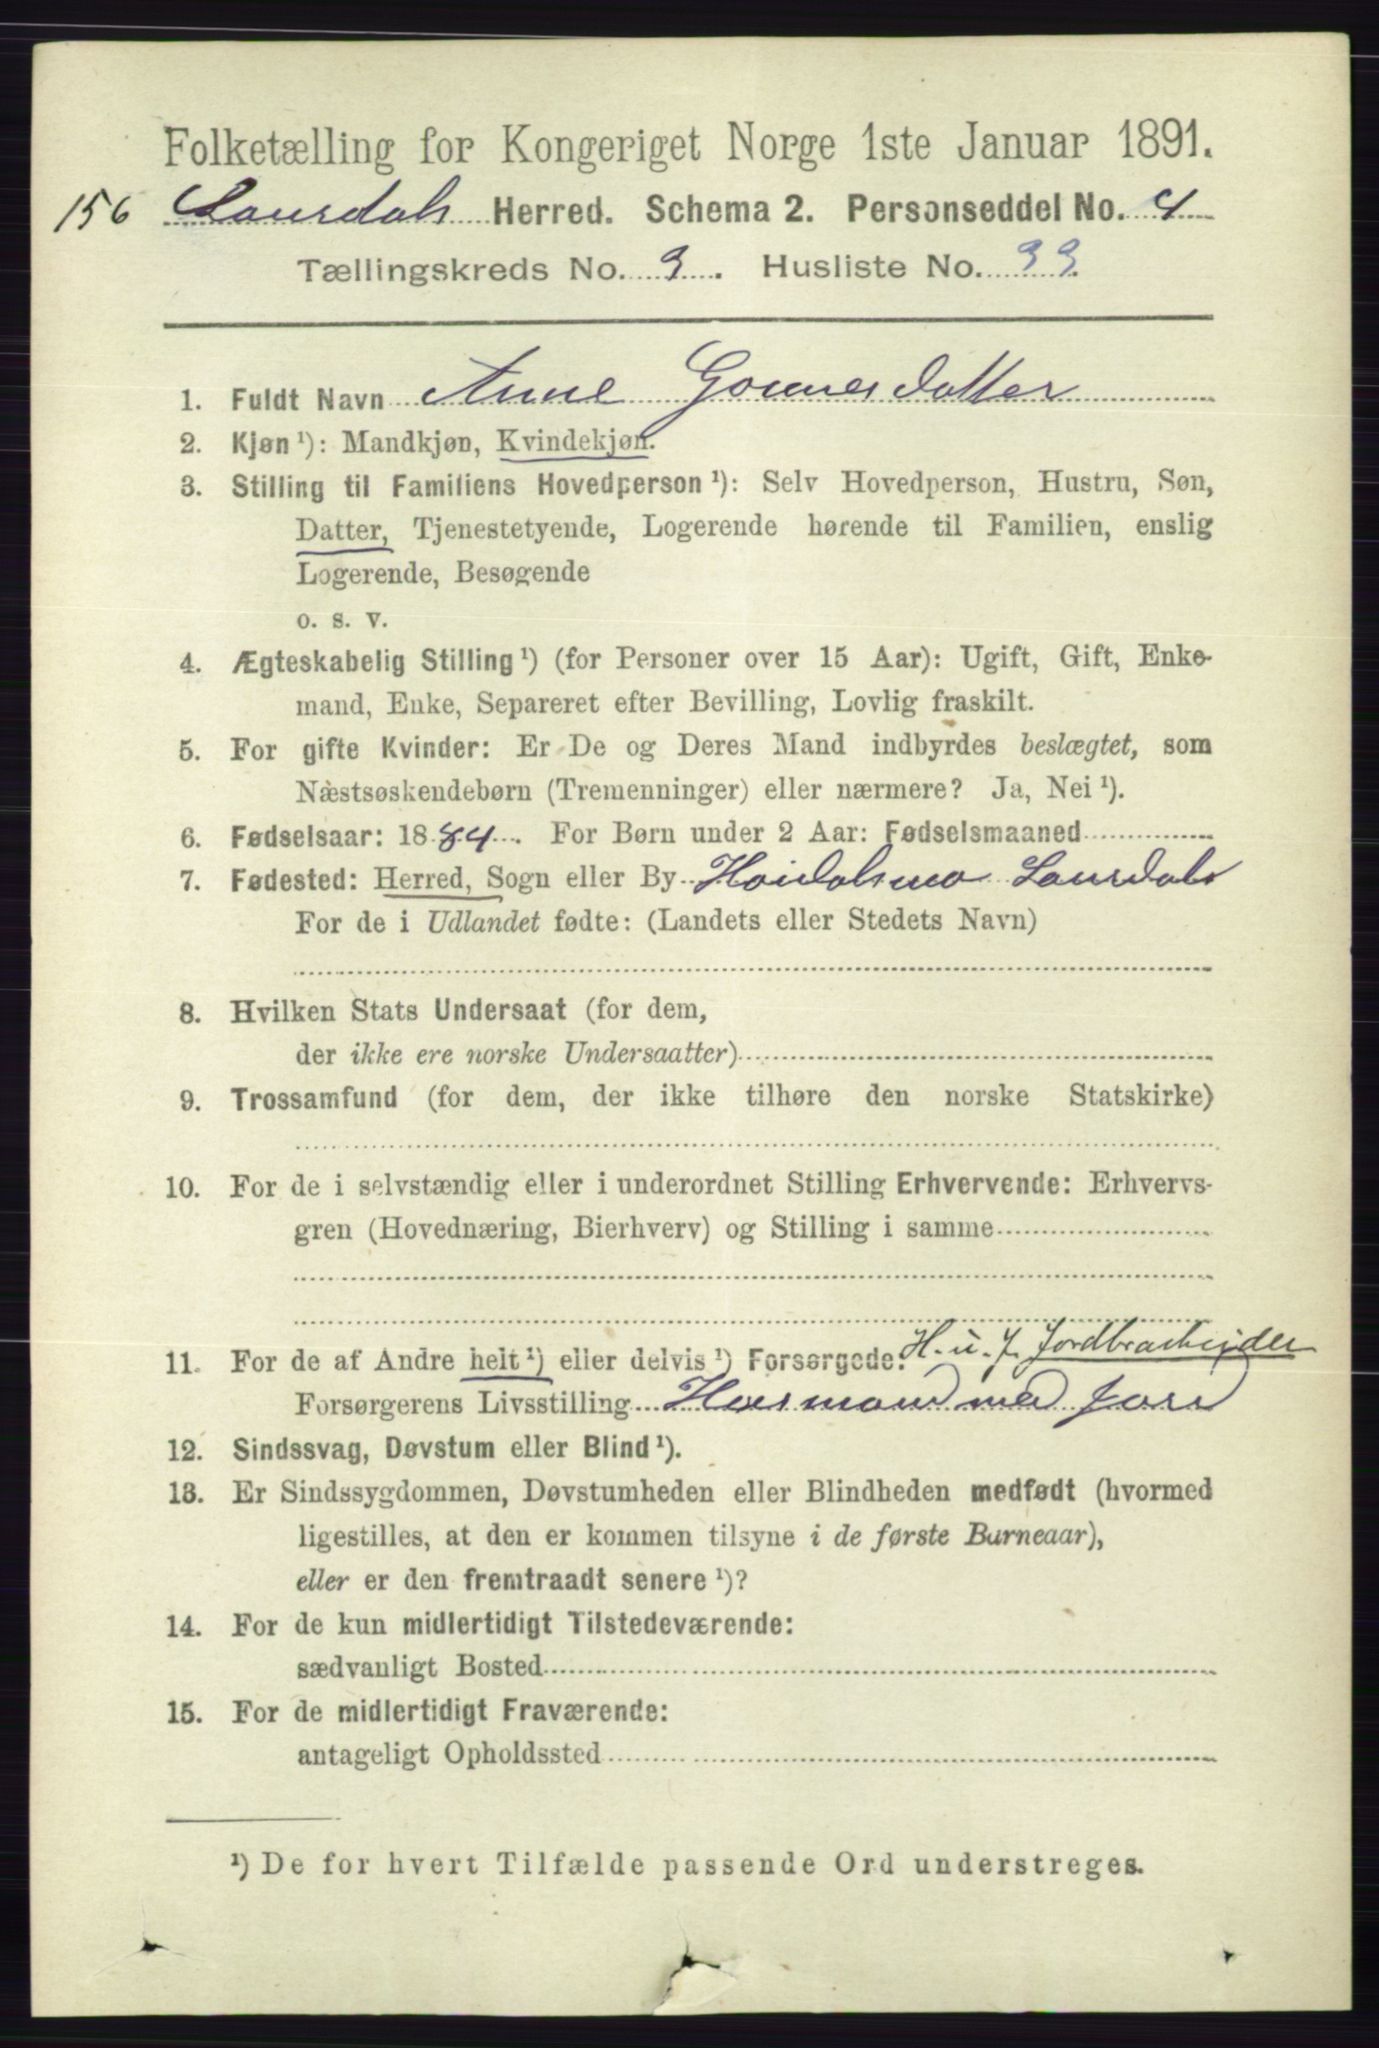 Folketælling for Kongeriget Norge 1ste Januar 1891.
156 Laurdals Herred. Schema 2. Personseddel No. 4
Tællingskreds No. 3. Husliste No. 33.
1. Fuldt Navn Anne Gounesdatter
2. Kjøn ¹): Mandkjøn, Kvindekjøn.
3. Stilling til Familiens Hovedperson ¹): Selv Hovedperson, Hustru, Søn,
Datter, Tjenestetyende, Logerende hørende til Familien, enslig
Logerende, Besøgende
o. s. v.
4. Ægteskabelig Stilling ¹) (for Personer over 15 Aar): Ugift, Gift, Enke-
mand, Enke, Separeret efter Bevilling, Lovlig fraskilt.
5. For gifte Kvinder: Er De og Deres Mand indbyrdes beslægtet, som
Næstsøskendebørn (Tremenninger) eller nærmere? Ja, Nei ¹).
6. Fødselsaar: 1884. For Børn under 2 Aar: Fødselsmaaned
7. Fødested: Herred, Sogn eller By Høidalsmo Laurdals
For de i Udlandet fødte: (Landets eller Stedets Navn)
8. Hvilken Stats Undersaat (for dem,
der ikke ere norske Undersaatter)
9. Trossamfund (for dem, der ikke tilhøre den norske Statskirke)
10. For de i selvstændig eller i underordnet Stilling Erhvervende: Erhvervs-
gren (Hovednæring, Bierhverv) og Stilling i samme
H. u. J. Jordbrarbeider
11. For de af Andre helt ¹) eller delvis ¹) Forsørgede:
Forsørgerens Livsstilling Husmand med Jord
12. Sindssvag, Døvstum eller Blind ¹).
13. Er Sindssygdommen, Døvstumheden eller Blindheden medfødt (hvormed
ligestilles, at den er kommen tilsyne i de første Burneaar),
eller er den fremtraadt senere ¹)?
14. For de kun midlertidigt Tilstedeværende:
sædvanligt Bosted
15. For de midlertidigt Fraværende:
antageligt Opholdssted
¹) De for hvert Tilfælde passende Ord understreges.